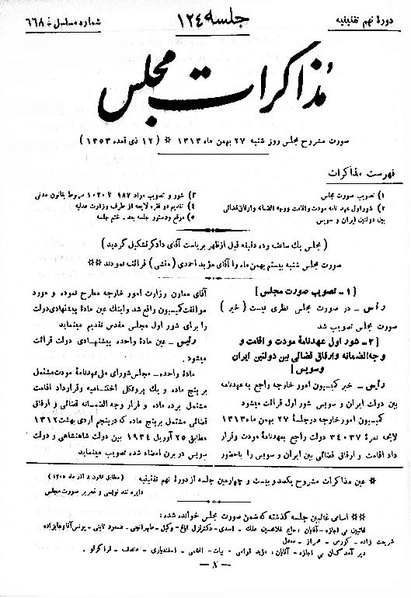 دورهٔ نهم تقنینیه
جلسه ۱۲۴
شماره مسلسل ۶۶۸
مذاکرات مجلس
صورت مشروح مجلس روز شنبه ۲۷ بهمن ماه ۱۳۱۳ ** (۱۲ ذی قعده ۱۳۵۳)
فهرست مذاکرات
۱) تصویب صورت مجلس
۲) شور اول عهد نامه مودت و اقامت ووجه الضمانه وقرارقضائی
بین دولتین ایران و سویس
۳) شور و تصویب مواد ۹۸۲ تا ۱۰۳۰ مربوط بقانون مدنی
۴) تقدیم دو فقره لایحه از طرف وزارت عدلیه
۵) موقع ودستور جلسه بعد ـ ختم جلسه
(مجلس یک ساعت وده دقیقه قبل ازظهر بریاست آقای دادگر تشکیل گردید)
صورت مجلس شنبه بیستم بهمن ماه را آقای مؤید احمدی (منشی) قرائت نمودند
[۱ ـ تصویب صورت مجلس]
رئیس ـ در صورت مجلس نظری نیست (خیر)
[۲ ـ شور اول عهدنامهٔ مودت و اقامت و
وجه الضمانه وقرارقضائی بین دولتین ایران
و سویس]
رئیس ـ خبر کمیسیون امور خارجه راجع به عهدنامه
بین دولت ایران و سویس شور اول قرائت میشود
کمیسیون امور خارجه درجلسهٔ ۲۷ بهمن ماه ۱۳۱۳
لایحه نمرهٔ ۳۴۰۳۷ دولت راجع بعهدنامهٔ مودت وقرار
داد اقامت و قرارداد قضائی بین ایران و سویس را باحضور
آقای معاون وزارت امور خارجه مطرح نموده و مورد
موافقت کمیسیون واقع شد واینک عین مادهٔ پیشنهادی دولت
را برای شور اول مجلس مقدس تقدیم مینماید
رئیس ـ عین مادهٔ واحده پیشنهادی دولت قرائت
میشود.
مادهٔ واحده ـ مجلس شورای ملی عهدنامهٔ مودت مشتمل
بر پنج ماده و یک پروتکل اختتامیه وقرارداد اقامت
مشتمل برده ماده و قرار وجه الضمانه قضائی و قرار قضائی
مشتمل بر پنج ماده که در پنجم اردی بهشت ۱۳۱۳
مطابق ۲۵ آوریل ۱۹۳۴ بین دولت شاهنشاهی و دولت
سویس در برن امضاء شده تصویب مینماید
* عین مذاکرات مشروح یکصد و بیست و چهارمین جلسه از دورهٔ نهم تقنینیه
(مطابق قانون ۸ آذر ماه ۱۳۰۵)
دایره تند نویسی و تحریر صورت مجلس
* اسامی غائبین جلسه گذشته که ضمن صورت مجلس خوانده شده:
غائبین بی اجازه ـ آقایان: حاج غلامحسین ملک ـ اسدی ـ دکتر قزل ایاغ ـ وکیل ـ طهرانچی ـ مسعود ثابتی ـ یونس آقا وهابزاده
شریعت زاده ـ کورس
دیر آمدگان بی اجازه ـ آقایان: مؤید قوامی ـ بیات ـ اسفندیاری ـ دشتی ـ قراگزلو
ـ ۸ ـ